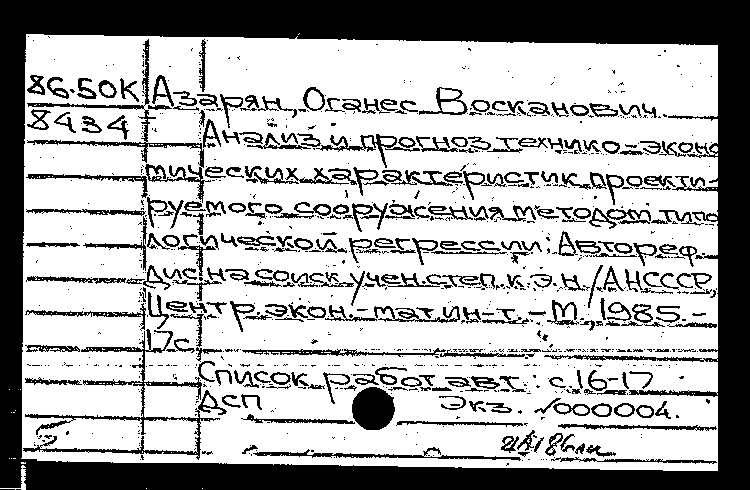 86.50К Азарян, Оганес Восканович
8434 Анализ и прогноз технико-эконо
мических характеристик проекти-
руемого сооружения методом типо
логической регрессии: Автореф.
дис. на соиск. учен. степ. к.э.н. / АН СССР,
Центр. экон.-мат. ин-т. - М., 1985. -
17с.
Список работ авт.: с.16-17
ДСП Экз. √000004.
5